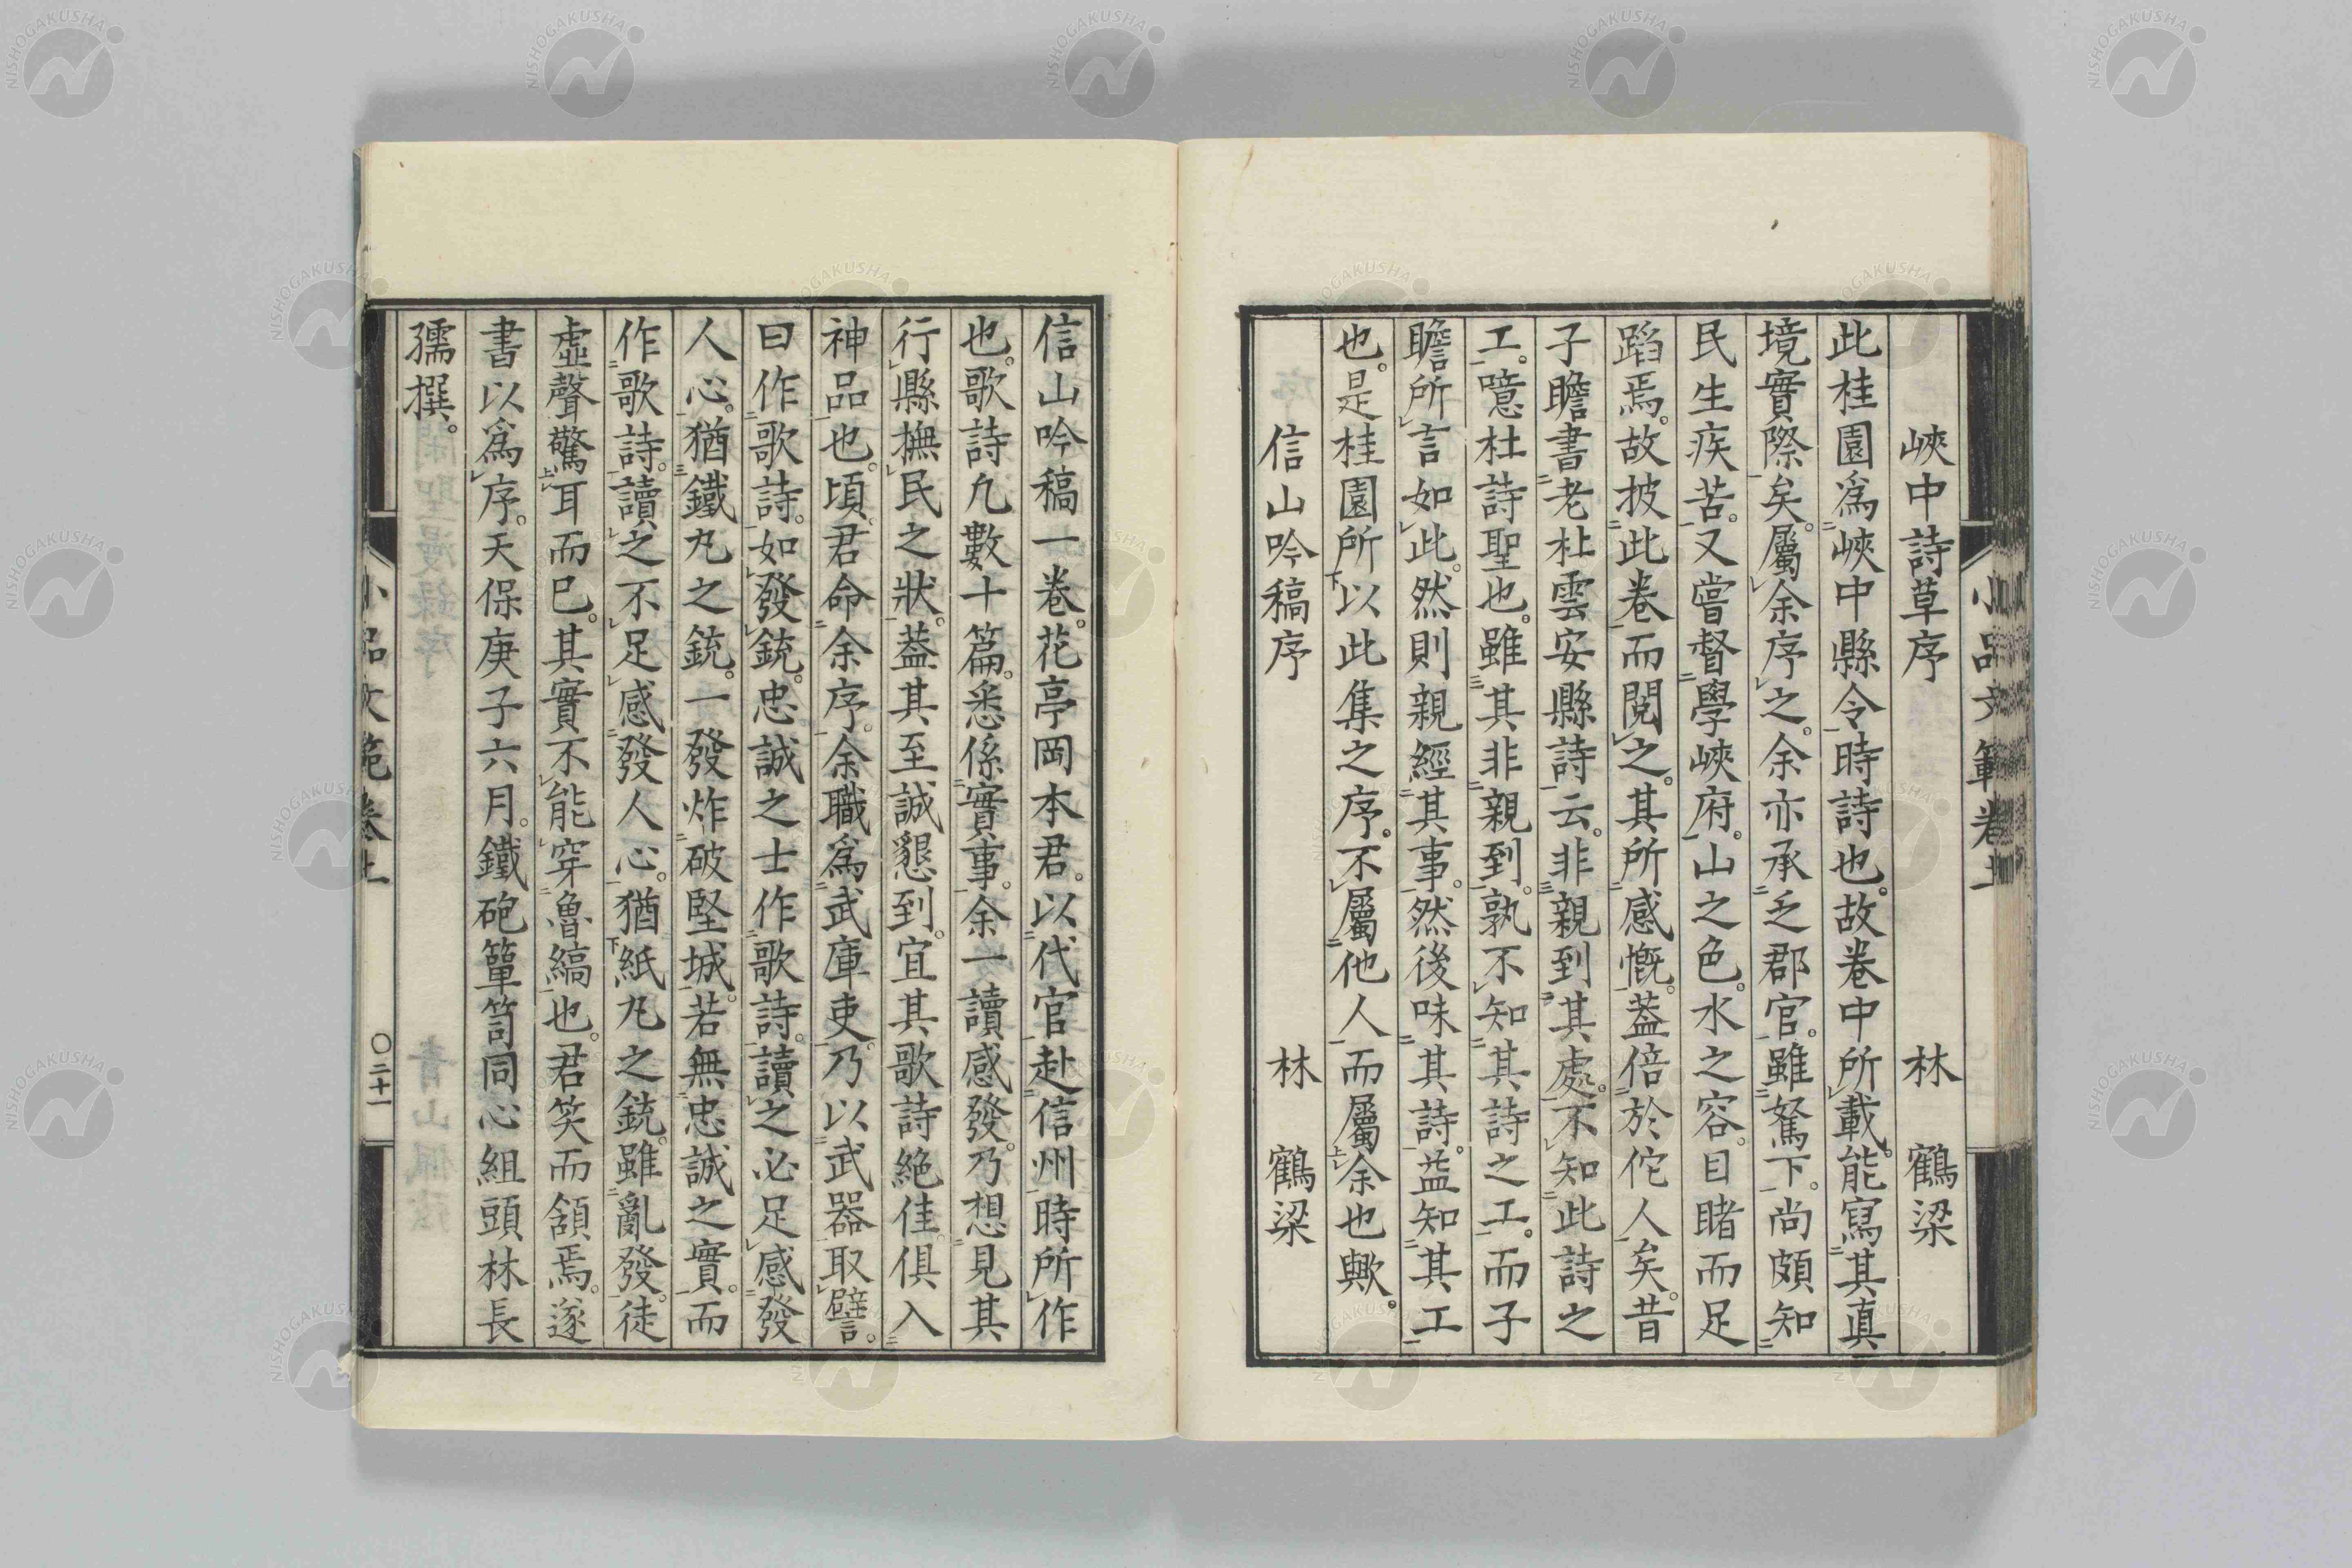 小品文範卷上
峽中詩草序　林　鶴梁
此桂園爲峽中縣令時詩也。故卷中所載。能寫其真
境實際矣。屬余序之。余亦承乏郡官。雖駑下。尚頗知
民生疾苦。又嘗督學峽府。山之色。水之容。目睹而足
蹈焉。故披此卷而閱之。其所感慨。蓋倍於佗人矣。昔
子瞻書老杜雲安縣詩云。非親到其處。不知此詩之
工。噫杜詩聖也。雖其非親到。孰不知其詩之工。而子
瞻所言如此。然則親經其事。然後味其詩。益知其工
也。是桂園所以此集之序。不屬他人而屬余也歟。
信山吟稿序　林　鶴梁
信山吟稿一卷。花亭岡本君。以代官赴信州時所作
也。歌詩凡數十篇。悉係實事。余一讀感發。乃想見其
行縣撫民之狀。蓋其至誠懇到。宜其歌詩絶佳。俱入
神品也。頃君命余序。余職爲武庫吏。乃以武器取譬。
曰作歌詩。如發銃。忠誠之士作歌詩。讀之必足感發
人心。猶鐵丸之銃。一發炸破堅城。若無忠誠之實。而
作歌詩。讀之不足感發人心。猶紙丸之銃。雖亂發。徒
虛聲驚耳而已。其實不能穿魯縞也。君笑而頷焉。遂
書以爲序。天保庚子六月。鐵砲簞笥同心組頭林長
孺撰。
小品文範卷上
〇二十一
NISHOGAKUSHA